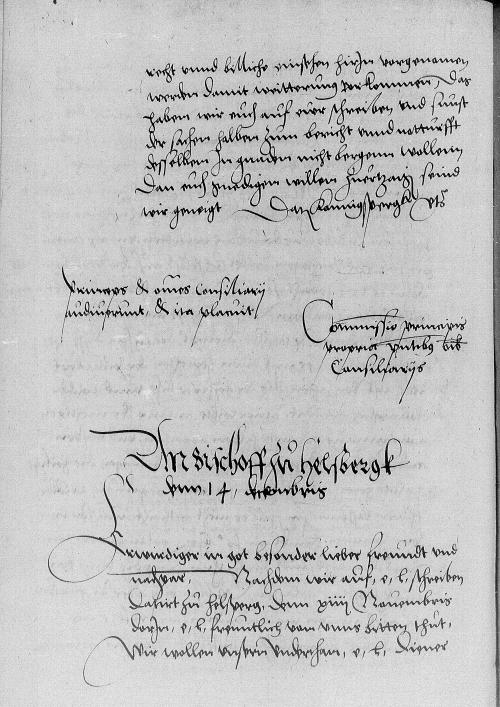 recht vnnd billiche einsehen hirJn vorgenomen
werden damit weitterung vorkommen, Das
haben wir euch auf euer schreiben vnd sunst
der sachen halben zum bericht vnnd notturfft
desselben Jn gnaden nicht bergenn wollenn
Dan euch gnedigen willen zu ertzaigen seind
wir geneigt Dat Konnigspergk vts
princeps & omes Consiliarij
audiuerunt, & ita placuit
Commissio principis
propria pntibus
Consiliarijs
An Bischoff zu Helsbergk
denn 14, decembris
Erwirdiger in got besonder lieber freundt vnd
nachpar, Nachdem wir auf, e, l, schreiben
Datirt zu Helsperg, denn xiiij Nouembris
dorJn, e, l, freuntlich von vnns bitten thut,
Wir wollen vnsern vnderthan, e, l, Diener